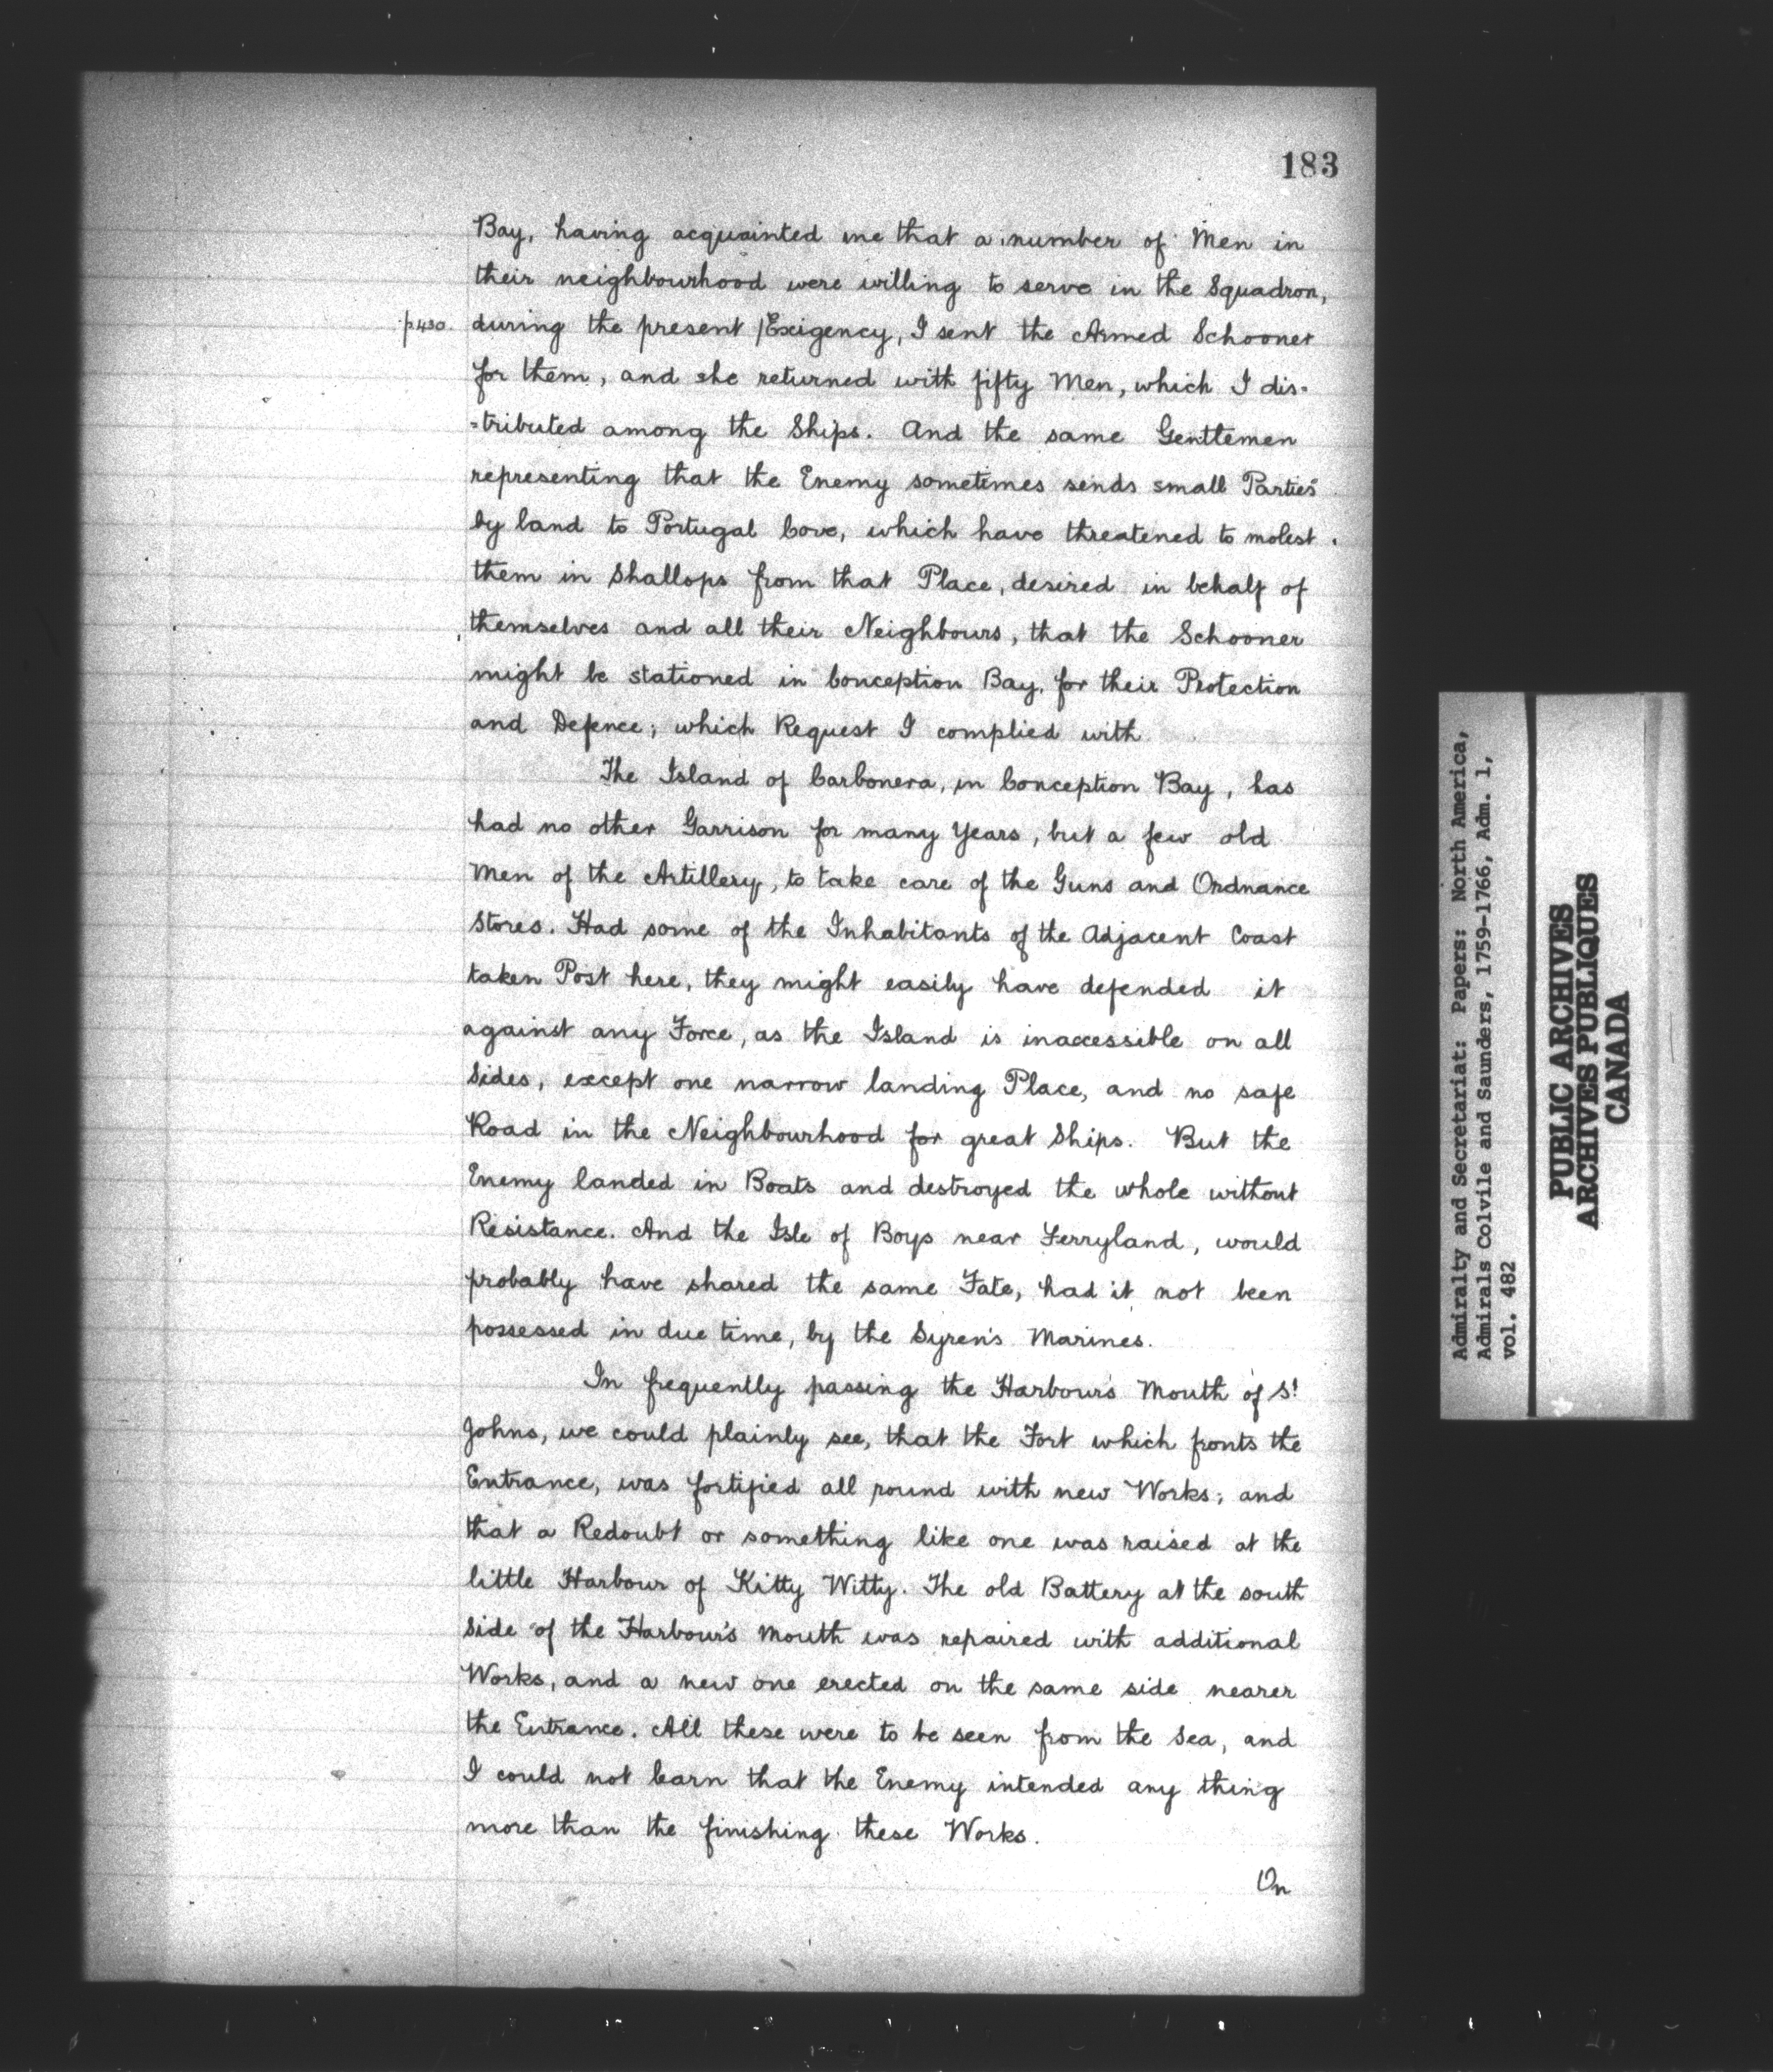 183
Bay, having acquainted me that a number of Men in
their neighbourhood were willing to serve in the Squadron,
p430. during the present /Exigency, I sent the Armed Schooner
for them, and she returned with fifty Men, which I dis=
=tributed among the Ships. And the same Gentlemen
representing that the Enemy sometimes sends small Parties
by land to Portugal Cove, which have threatened to molest
them in Shallops from that Place, desired in behalf of
themselves and all their Neighbours, that the Schooner
might be stationed in Conception Bay, for their Protection
and Defence; which Request I complied with
The Island of Carbonera, in Conception Bay, has
had no other Garrison for many Years, but a few old
Men of the Artillery, to take care of the Guns and Ordnance
Stores. Had some of the Inhabitants of the Adjacent Coast
taken Post here, they might easily have defended it
against any Force, as the Island is inaccessible on all
Sides, except one narrow landing Place, and no safe
Road in the Neighbourhood for great Ships. But the
Enemy landed in Boats and destroyed the whole without
Resistance. And the Isle of Boys near Ferryland, would
probably have shared the same Fate, had it not been
possessed in due time, by the Syren's Marines.
In frequently passing the Harbour's Mouth of St
Johns, we could plainly see, that the Fort which fronts the
Entrance, was fortified all round with new Works; and
that a Redoubt or something like one was raised at the
little Harbour of Kitty Witty. The old Battery at the south
side of the Harbour's Mouth was repaired with additional
Works, and a new one erected on the same side nearer
the Entrance. All these were to be seen from the Sea, and
I could not learn that the Enemy intended any thing
more than the finishing these Works.
On
Admiralty and Secretariat: Papers: North America,
Admirals Colvile and Saunders, 1759-1766, Adm. 1,
vol. 482
PUBLIC ARCHIVES
ARCHIVES PUBLIQUES
CANADA